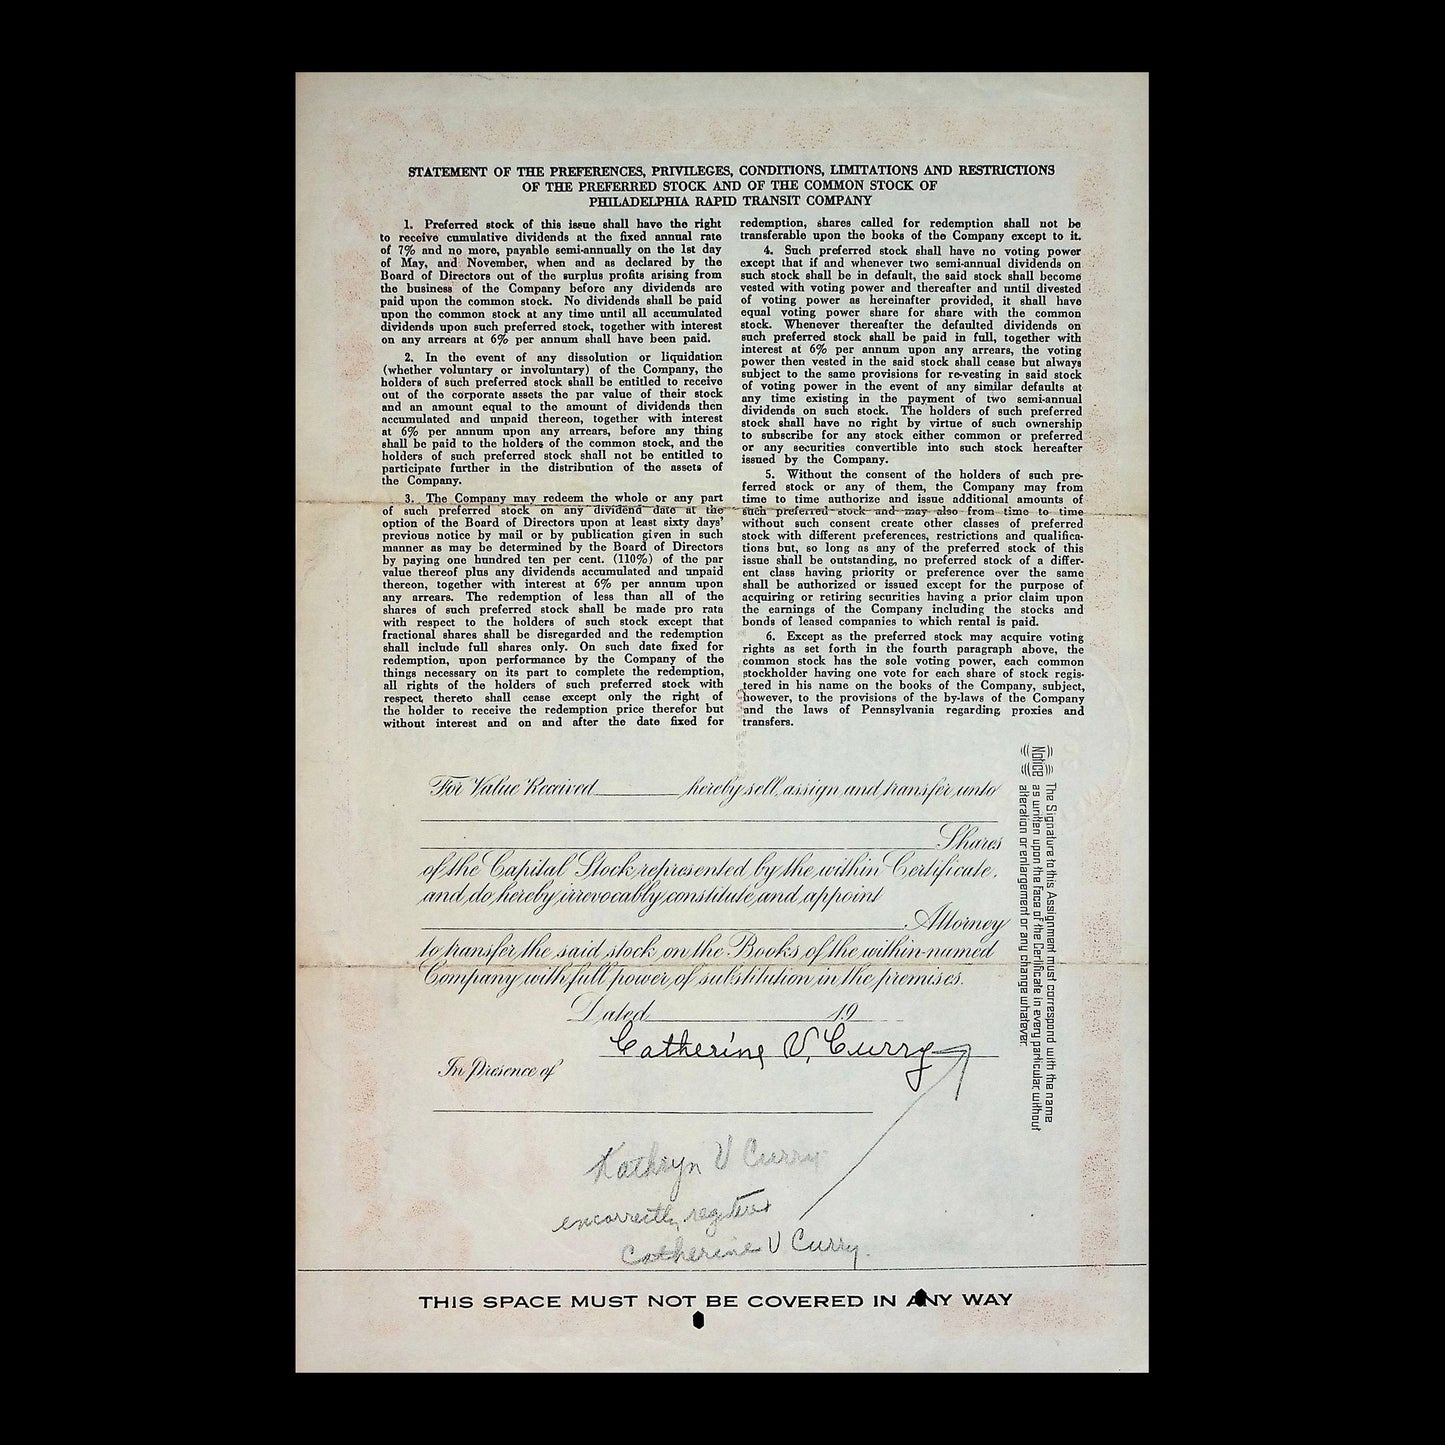 STATEMENT OF THE PREFERENCES, PRIVILEGES, CONDITIONS, LIMITATIONS AND RESTRICTIONS
OF THE PREFERRED STOCK AND OF THE COMMON STOCK OF
PHILADELPHIA RAPID TRANSIT COMPANY
1. Preferred stock of this issue shall have the right
to receive cumulative dividends at the fixed annual rate
of 7% and no more, payable semi-annually on the 1st day
of May, and November, when and as declared by the
Board of Directors out of the surplus profits arising from
the business of the Company before any dividends are
paid upon the common stock. No dividends shall be paid
upon the common stock at any time until all accumulated
dividends upon such preferred stock, together with interest
on any arrears at 6% per annum shall have been paid.
2. In the event of any dissolution or liquidation
(whether voluntary or involuntary) of the Company, the
holders of such preferred stock shall be entitled to receive
out of the corporate assets the par value of their stock
and an amount equal to the amount of dividends then
accumulated and unpaid thereon, together with interest
at 6% per annum upon any arrears, before any thing
shall be paid to the holders of the common stock, and the
holders of such preferred stock shall not be entitled to
participate further in the distribution of the assets of
the Company.
3. The Company may redeem the whole or any part
of such preferred stock on any dividend date at the
option of the Board of Directors upon at least sixty days'
previous notice by mail or by publication given in such
manner as may be determined by the Board of Directors
by paying one hundred ten per cent. (110%) of the par
value thereof plus any dividends accumulated and unpaid
thereon, together with interest at 6% per annum upon
any arrears. The redemption of less than all of the
shares of such preferred stock shall be made pro rata
with respect to the holders of such stock except that
fractional shares shall be disregarded and the redemption
shall include full shares only. On such date fixed for
redemption, upon performance by the Company of the
things necessary on its part to complete the redemption,
all rights of the holders of such preferred stock with
respect thereto shall cease except only the right of
the holder to receive the redemption price therefor but
without interest and on and after the date fixed for
redemption, shares called for redemption shall not be
transferable upon the books of the Company except to it.
4. Such preferred stock shall have no voting power
except that if and whenever two semi-annual dividends on
such stock shall be in default, the said stock shall become
vested with voting power and thereafter and until divested
of voting power as hereinafter provided, it shall have
equal voting power share for share with the common
stock. Whenever thereafter the defaulted dividends on
such preferred stock shall be paid in full, together with
interest at 6% per annum upon any arrears, the voting
power then vested in the said stock shall cease but always
subject to the same provisions for re-vesting in said stock
of voting power in the event of any similar defaults at
any time existing in the payment of two semi-annual
dividends on such stock. The holders of such preferred
stock shall have no right by virtue of such ownership
to subscribe for any stock either common or preferred
or any securities convertible into such stock hereafter
issued by the Company.
5. Without the consent of the holders of such pre-
ferred stock or any of them, the Company may from
time to time authorize and issue additional amounts of
such preferred stock and may also from time to time
without such consent create other classes of preferred
stock with different preferences, restrictions and qualifica-
tions but, so long as any of the preferred stock of this
issue shall be outstanding, no preferred stock of a differ-
ent class having priority or preference over the same
shall be authorized or issued except for the purpose of
acquiring or retiring securities having a prior claim upon
the earnings of the Company including the stocks and
bonds of leased companies to which rental is paid.
6. Except as the preferred stock may acquire voting
rights as set forth in the fourth paragraph above, the
common stock has the sole voting power, each common
stockholder having one vote for each share of stock regis-
tered in his name on the books of the Company, subject,
however, to the provisions of the by-laws of the Company
and the laws of Pennsylvania regarding proxies and
transfers.
For Value Received hereby sell, assign and transfer unto
Shares
of the Capital Stock represented by the within Certificate,
and do hereby irrevocably constitute and appoint
Attorney
to transfer the said stock on the Books of the within-named
Company with full power of substitution in the premises.
Dated 19
Catherine V. Curry
In Presence of
Kathryn V Curry
incorrectly registered
Catherine V Curry.
THIS SPACE MUST NOT BE COVERED IN ANY WAY
NOTICE
The Signature to this Assignment must correspond with the name
as written upon the face of the Certificate in every particular, without
alteration or enlargement or any change whatever.